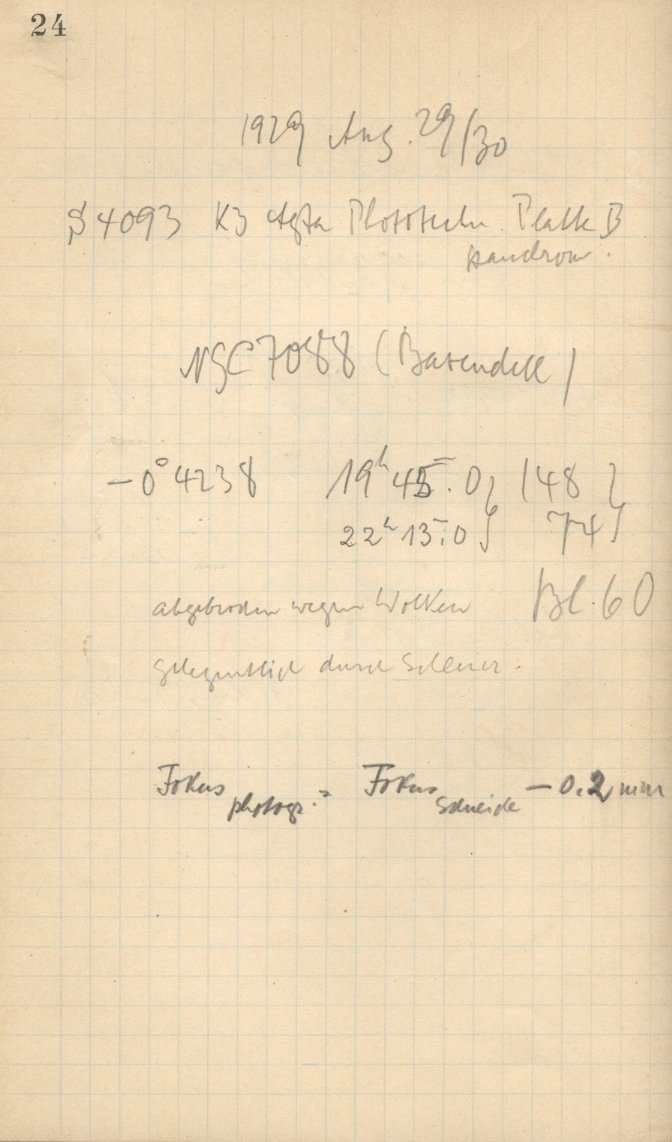 24
1929 Aug. 29/30
S 4093 K3 Agfa Phototechn. Platte B
panchrom.
NGC 7088 (Baxendell)
-0° 4238 19h 45m.0 } 148 }
22h 13m.0 } 74 }
abgebrochen wegen Wolken Bl. 60
gelegentlich durch Schleier.
Fokus photogr. = Fokus Schneide - 0.2 mm